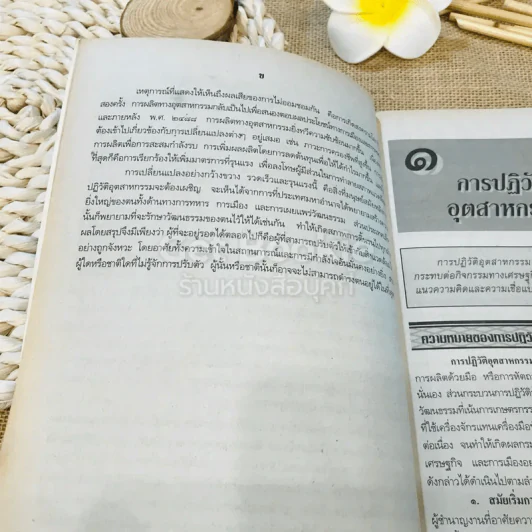 ข
เหตุการณ์ที่แสดงให้เห็นถึงผลเสียของการไม่ยอมชอมกัน คือการเกิดสงคราม
สองครั้ง การผลิตทางอุตสาหกรรมกลับเป็นไปเพื่อสนองตอบผลประโยชน์ทางการเมือง
และภายหลัง พ.ศ. ๒๔๘๘ การผลิตทางอุตสาหกรรมยิ่งทวีความซับซ้อนมากขึ้น
ต้องเข้าไปเกี่ยวข้องกับการเปลี่ยนแปลงต่างๆ อยู่เสมอ เช่น ภาวะการครองชีพที่สูงขึ้น
การผลิตเพื่อการสะสมกำลังรบ การเพิ่มผลผลิตโดยการลดต้นทุนเพื่อให้ได้กำไรมากขึ้น
ที่สุดก็คือการเรียกร้องให้เพิ่มมาตรการที่รุนแรง เพื่อลงโทษผู้มีส่วนในการทำลาย
การเปลี่ยนแปลงอย่างกว้างขวาง รวดเร็วและรุนแรงนี้ คือสิ่งที่มนุษย์
ปฏิวัติอุตสาหกรรมจะต้องเผชิญ จะเห็นได้จากการที่ประเทศมหาอำนาจได้พยายาม
ยิ่งใหญ่ของตนทั้งด้านการทหาร การเมือง และการเผยแพร่วัฒนธรรม ส่วนประเทศ
นั้นก็พยายามที่จะรักษาวัฒนธรรมของตนไว้ให้ได้เช่นกัน ทำให้เกิดสภาพการต้าน
ผลโดยสรุปจึงมีเพียงว่า ผู้ที่จะอยู่รอดได้ตลอดไปก็คือผู้ที่สามารถปรับตัวให้เข้ากับ
อย่างถูกจังหวะ โดยอาศัยทั้งความเข้าใจในสถานการณ์และการมีกำลังใจอันมั่นคงอย่างยิ่ง
ผู้ใดหรือชาติใดที่ไม่รู้จักการปรับตัว ผู้นั้นหรือชาตินั้นก็อาจจะไม่สามารถดำรงตนอยู่ได้
ร้านหนังสือบุคที
๑
การปฏิวั
อุตสาหกร
การปฏิวัติอุตสาหกรรม
กระทบต่อกิจกรรมทางเศรษฐกิ
แนวความคิดและความเชื่อแบ
ความหมายของการปฏิวั
การปฏิวัติอุตสาหกรรม
การผลิตด้วยมือ หรือการหัตถ
นั่นเอง ส่วนกระบวนการปฏิวัติ
วัฒนธรรมที่เน้นการเกษตรกรร
ที่ใช้เครื่องจักรแทนเครื่องมือ
ต่อเนื่อง จนทำให้เกิดผลกระ
เศรษฐกิจ และการเมืองอย
ดังกล่าวได้ดำเนินไปตามลำ
๑. สมัยเริ่มกา
ผู้ชำนาญงานที่อาศัยควา